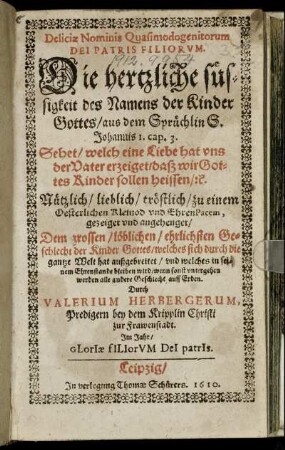 Deliciæ Nominis Quasimodogenitorum
DEI PATRIS FILIORVM.
Die hertzliche süs-
sigkeit des Namens der Kinder
Gottes/aus dem Sprüchlin S.
Johannis 1. cap. 3.
Sehet/welch eine Liebe hat vns
der Vater erzeiget/daß wir Got-
tes Kinder sollen heissen/ꝛc.
Nützlich/lieblich/tröstlich/zu einem
Oesterlichen Kleinod vnd EhrenPacem,
gezeiget vnd angehenget/
Dem grossen/löblichen/ehrlichsten Ge-
schlecht der Kinder Gottes/welches sich durch die
gantze Welt hat außgebreitet/vnd welches in sei-
nem Ehrenstande bleiben wird/wenn sonst vntergehen
werden alle andere Geschlecht auff Erden.
Durch
VALERIUM HERBERGERUM,
Predigern bey dem Kripplin Christi
zur Frawenstadt.
Im Jahr/
GLorIæ fILIorVM DeI patrIs.
Leipzig/
In verlegung Thomæ Schürers. 1610.